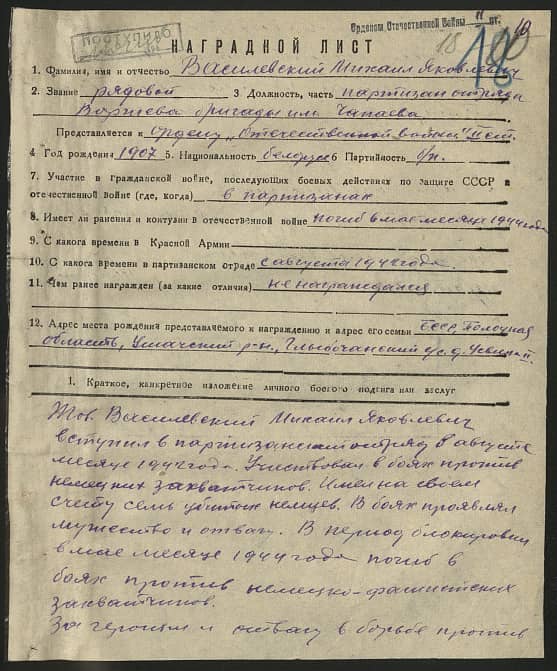 ПОСТУПИЛО
Орденом Отечественной Войны II ст.
18
НАГРАДНОЙ ЛИСТ
1. Фамилия, имя и отчество Василевский Михаил Яковлевич
2. Звание рядовой 3 Должность, часть партизан отряда
бригады им Чапаева
Представляется к Ордену „Отечественной войны" II ст.
4 Год рождения 1907 5. Национальность белорус 6 Партийность б/п.
7. Участие в гражданской войне, последующих боевых действиях по защите СССР и
отечественной войне (где, когда) в партизанах
8. Имеет ли ранения и контузии в отечественной войне погиб в мае месяце 1944 года
9. С какога времени в Красной Армии
10. С какога времени в партизанском отряде с августа 194 года.
11. Чем ранее награжден (за какие отличия) не награждался
12. Адрес места рождения представляемого к награждению и адрес его семьи БССР, Полоцкая
область, Ушачский р-н, Глыбочанский с/с. д.
1. Краткое, конкретное изложение личного боевого подвига или заслуг
Тов. Василевский Михаил Яковлевич
вступил в партизанский отряд в августе
месяце 194 года. Участвовал в боях против
немецких захватчиков. Имел на своем
счету семь убитых немцев. В боях проявлял
мужество и отвагу. В период блокировки
в мае месяце 1944 года погиб в
боях против немецко-фашистских
захватчиков.
За героизм и отвагу в борьбе против